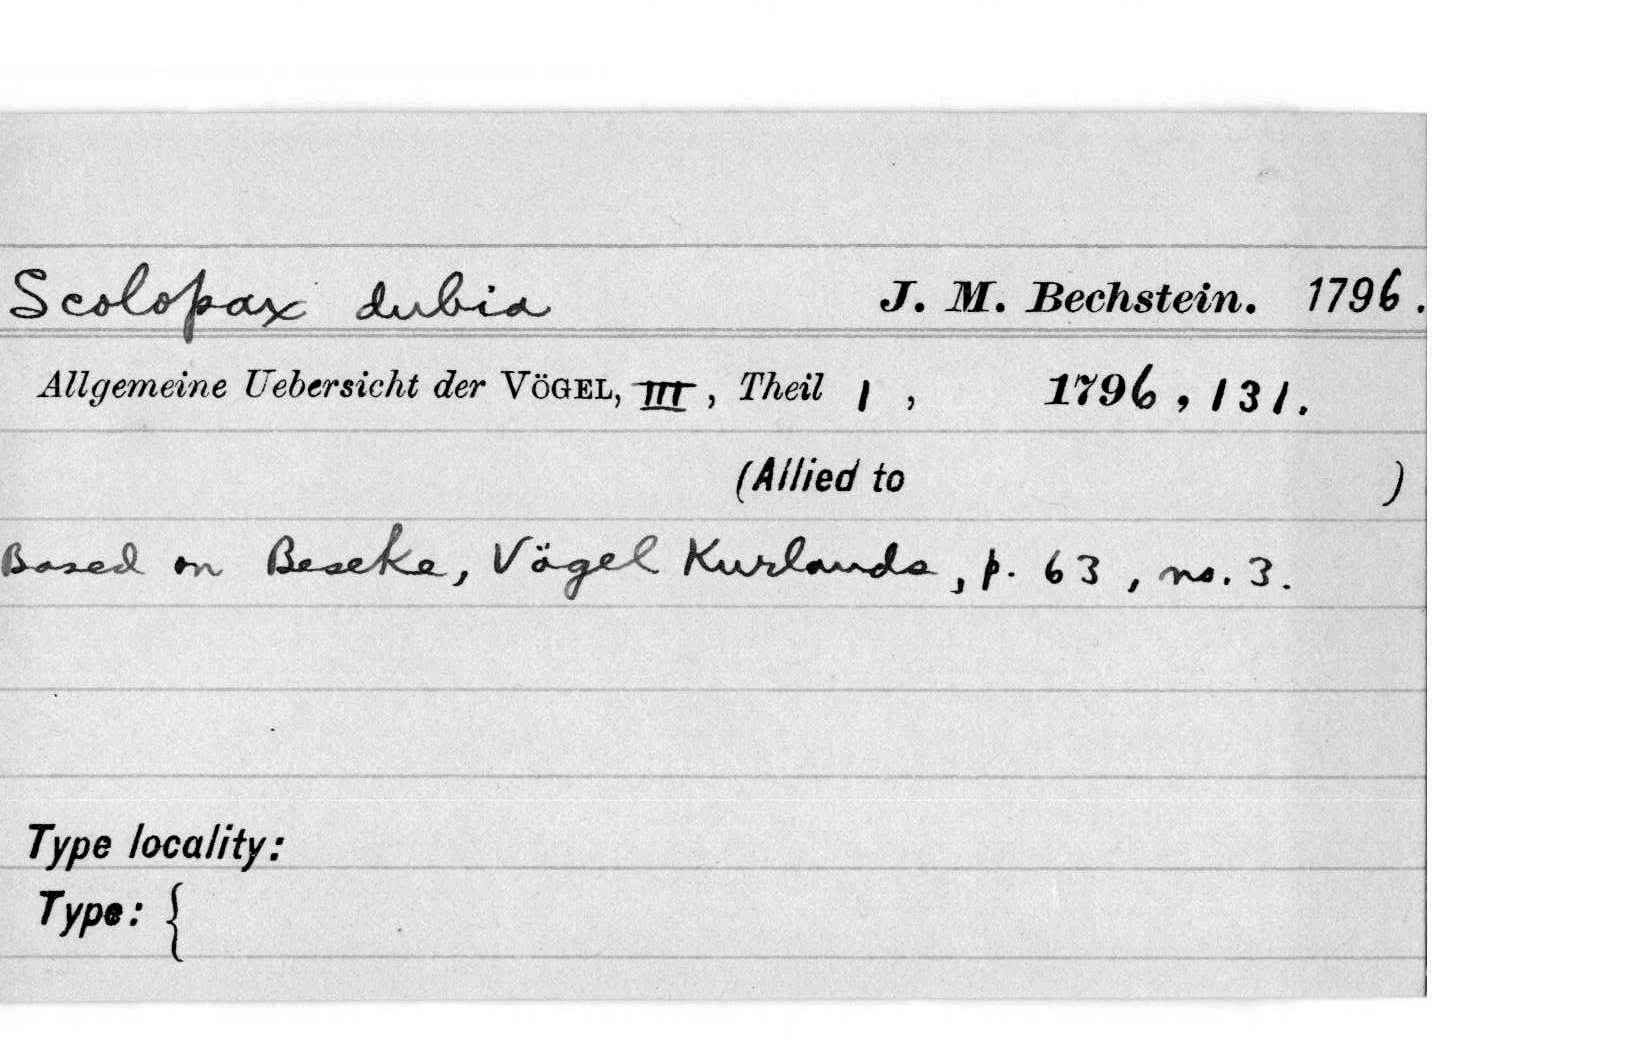 Scolopax dubia J. M. Bechstein. 1796.
Allgemeine Uebersicht der VÖGEL, III, Theil 1, 1796, 131.
(Allied to )
Based on Beseke, Vögel Kurlands, p. 63, no. 3.
Type locality:
Type: {